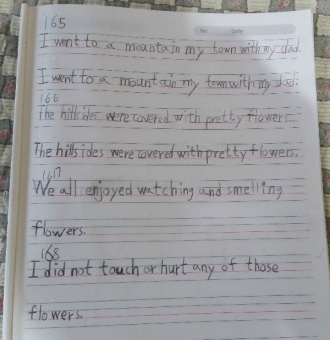 165
No. Date
I went to a mountain my town with my dad.
I went to a mountain my town with my dad.
166
The hillsides were covered with pretty flowers.
The hillsides were covered with pretty flowers.
167
We all enjoyed watching and smelling
flowers.
168
I did not touch or hurt any of those
flowers.